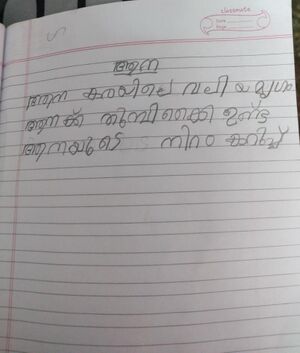 classmate
Date
Page
ആന
ആന കരയിലെ വലിയ മൃഗം
ആനക്ക് തുമ്പിക്കൈ ഉണ്ട്
ആനയുടെ നിറം കറുപ്പ്